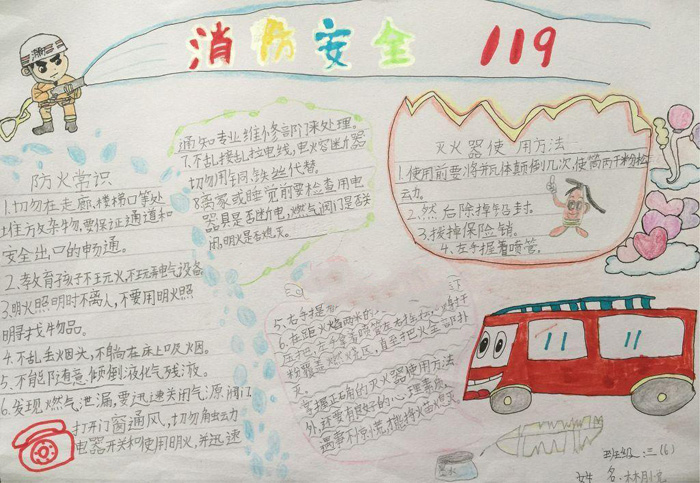 消防安全 119
防火常识
1.切勿在走廊,楼梯口等处
堆放杂物,要保证通道和
安全出口的畅通。
2.教育孩子不玩火,不玩弄电气设备
3.明火照明时不离人,不要用明火照
明寻找物品。
4.不乱丢烟头,不躺在床上吸烟。
5.不能随意倾倒液化气残液。
6.发现燃气泄漏,要迅速关闭气源阀门
打开门窗通风,切勿触动
电器开关和使用明火,并迅速
通知专业维修部门来处理。
7.不乱接乱拉电线,电火容断器
切勿用铜,铁丝代替。
8.离家或睡觉前要检查用电
器具是否断电,燃气阀门是否关
闭,明火是否熄灭。
灭火器使用方法
1.使用前要将瓶体颠倒几次,使筒内干粉松
动。
2.然后除掉铅封。
3.拔掉保险销。
4.左手握着喷管。
5.右手提
6.在距火焰两米的
压把,左手拿着喷管左右摇摆,
粉覆盖燃烧区,直至把火全部扑
灭。
掌握正确的灭火器使用方法
外,还要有良好的心理素质,
遇事不惊慌,才能将火苗熄灭
119
11
墨水
班级:三(6)
姓名:林